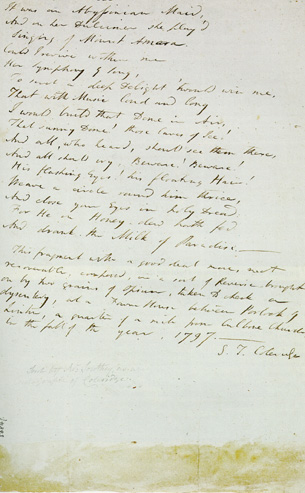 It was an Abyssinian Maid,
And on her Dulcimer she play'd
Singing of Mount Amara.
Could I revive within me
Her Symphony & Song,
To such a deep Delight 'twould win me,
That with Music loud and long
I would build that Dome in Air,
That sunny Dome! those Caves of Ice!
And all, who heard, should see them there,
And all should cry, Beware! Beware!
His flashing Eyes! his floating Hair!
Weave a circle round him thrice,
And close your Eyes in holy Dread,
For He on Honey-dew hath fed
And drank the Milk of Paradise.
This fragment with a good deal more, not
recoverable, composed, in a sort of Reverie brought
on by two grains of Opium, taken to check a
dysentery, at a Farm House between Porlock &
Linton, a quarter of a mile from Culbone Church,
in the fall of the year, 1797.
S. T. Coleridge